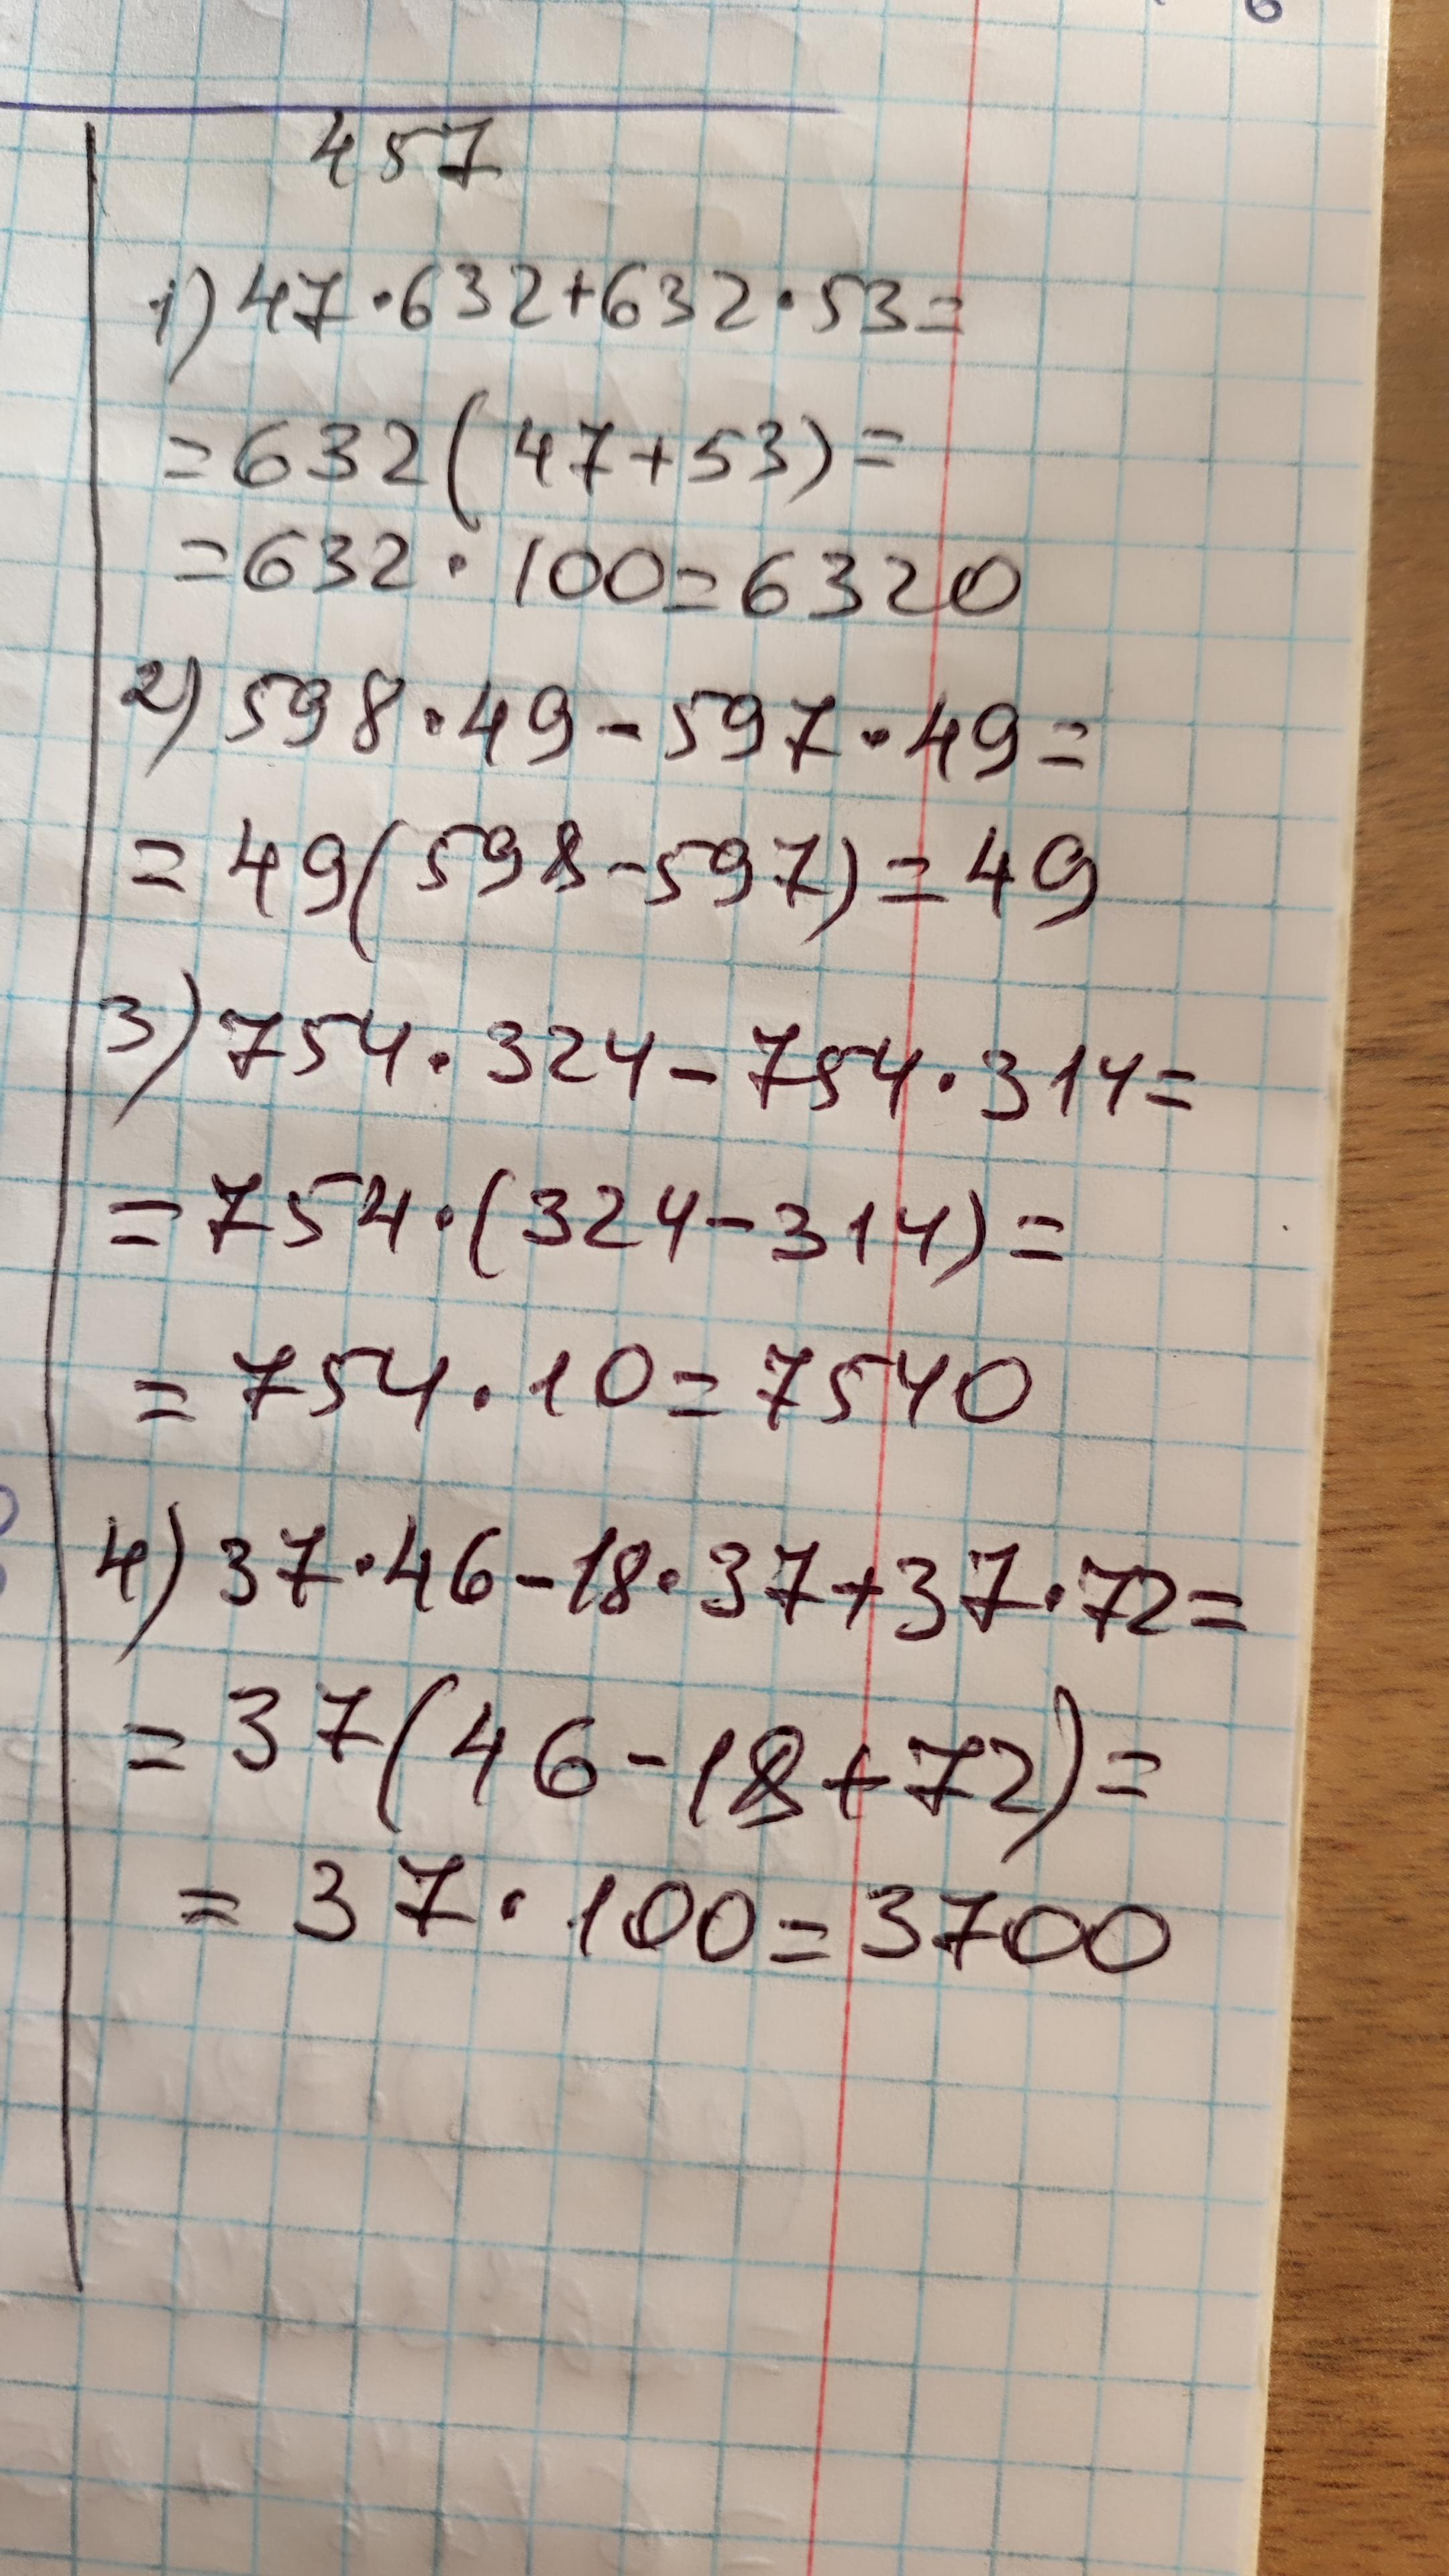 457
1) 47·632+632·53=
=632(47+53)=
=632·100=6320
2) 598·49-597·49=
=49(598-597)=49
3) 754·324-754·314=
=754·(324-314)=
=754·10=7540
4) 37·46-18·37+37·72=
=37(46-18+72)=
=37·100=3700